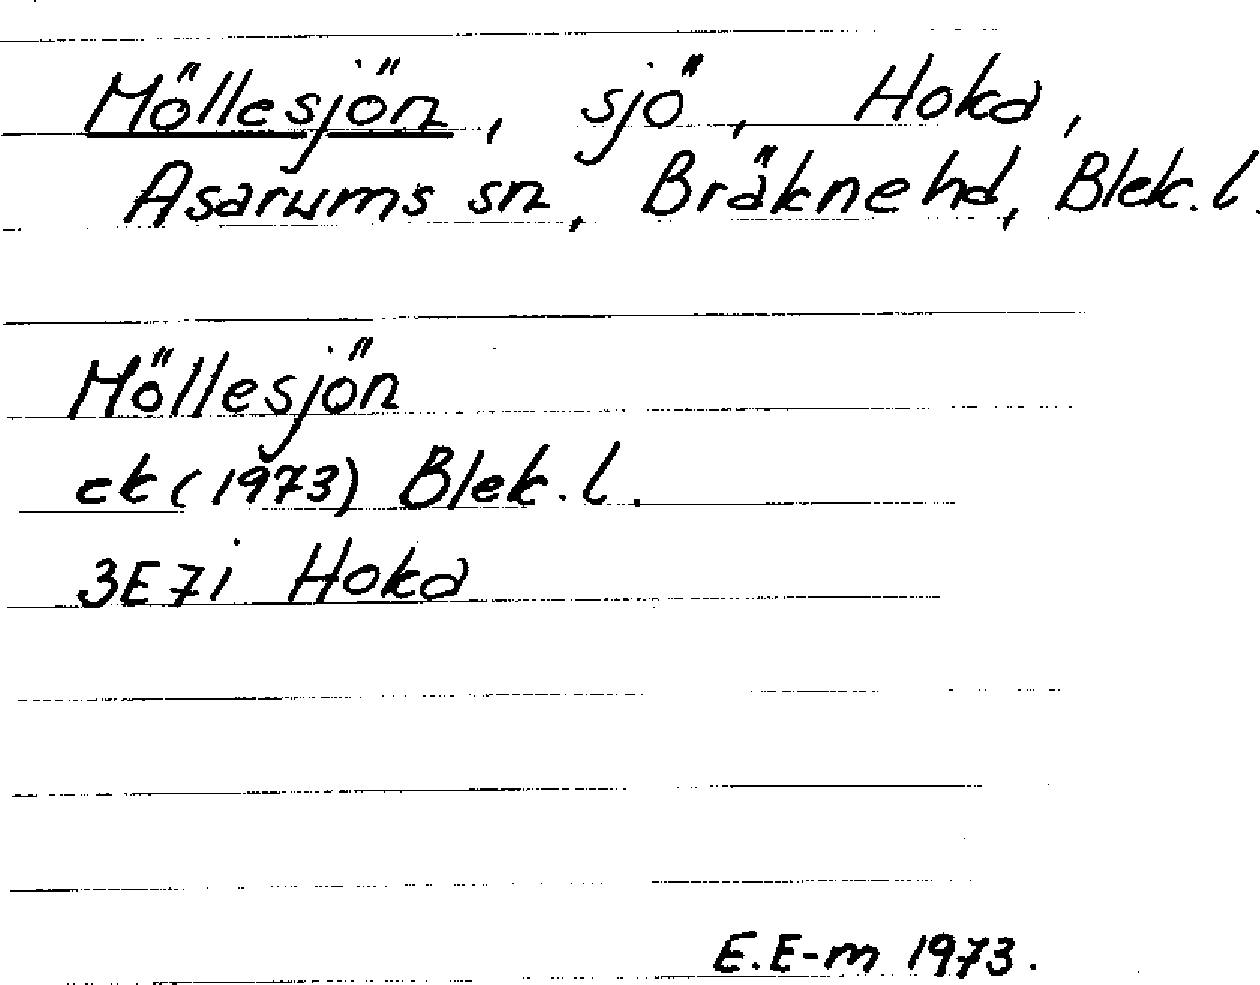 Möllesjön, sjö, Hoka,
Asarums sn, Bräkne hd, Blek. l.
Möllesjön
ek (1973) Blek. l.
3E7i Hoka
E. E-m 1973.